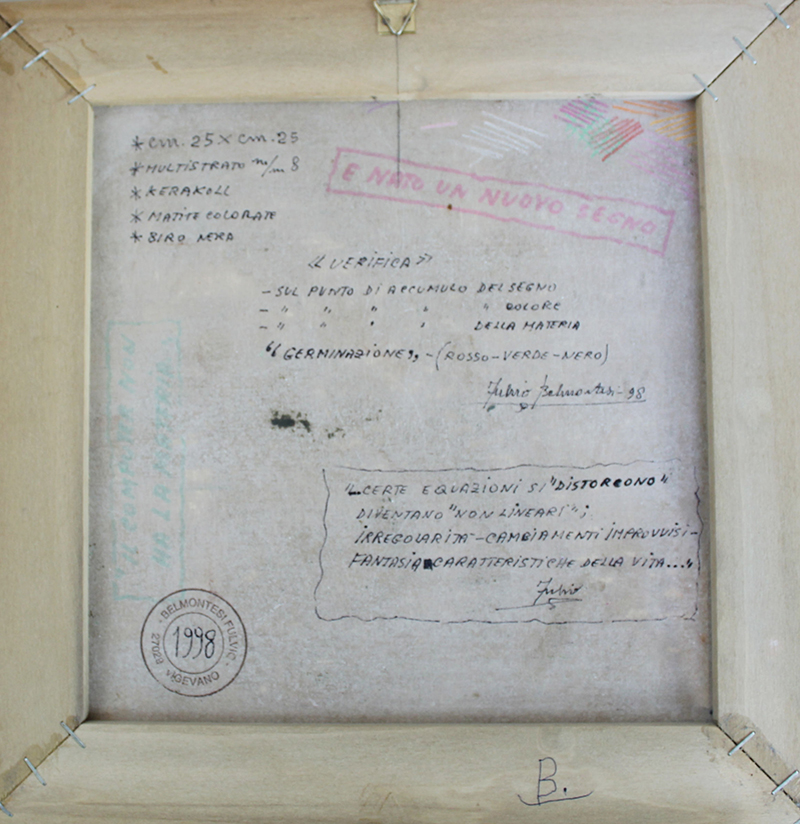 * cm. 25 x cm. 25
* MULTISTRATO m/m 8
* KERAKOLL
* MATITE COLORATE
* BIRO NERA
E NATO UN NUOVO SEGNO
« VERIFICA »
- SUL PUNTO DI ACCUMULO DEL SEGNO
- " " " " " COLORE
- " " " " DELLA MATERIA
"GERMINAZIONE" - (ROSSO - VERDE - NERO)
Fulvio Belmontesi - 98
"IL COMPUTER NON
HA LA
"...CERTE EQUAZIONI SI "DISTORCONO"
DIVENTANO "NON LINEARI";
IRREGOLARITA' - CAMBIAMENTI IMPROVVISI -
FANTASIA CARATTERISTICHE DELLA VITA..."
Fulvio
BELMONTESI FULVIO - 27029 VIGEVANO
1998
B.